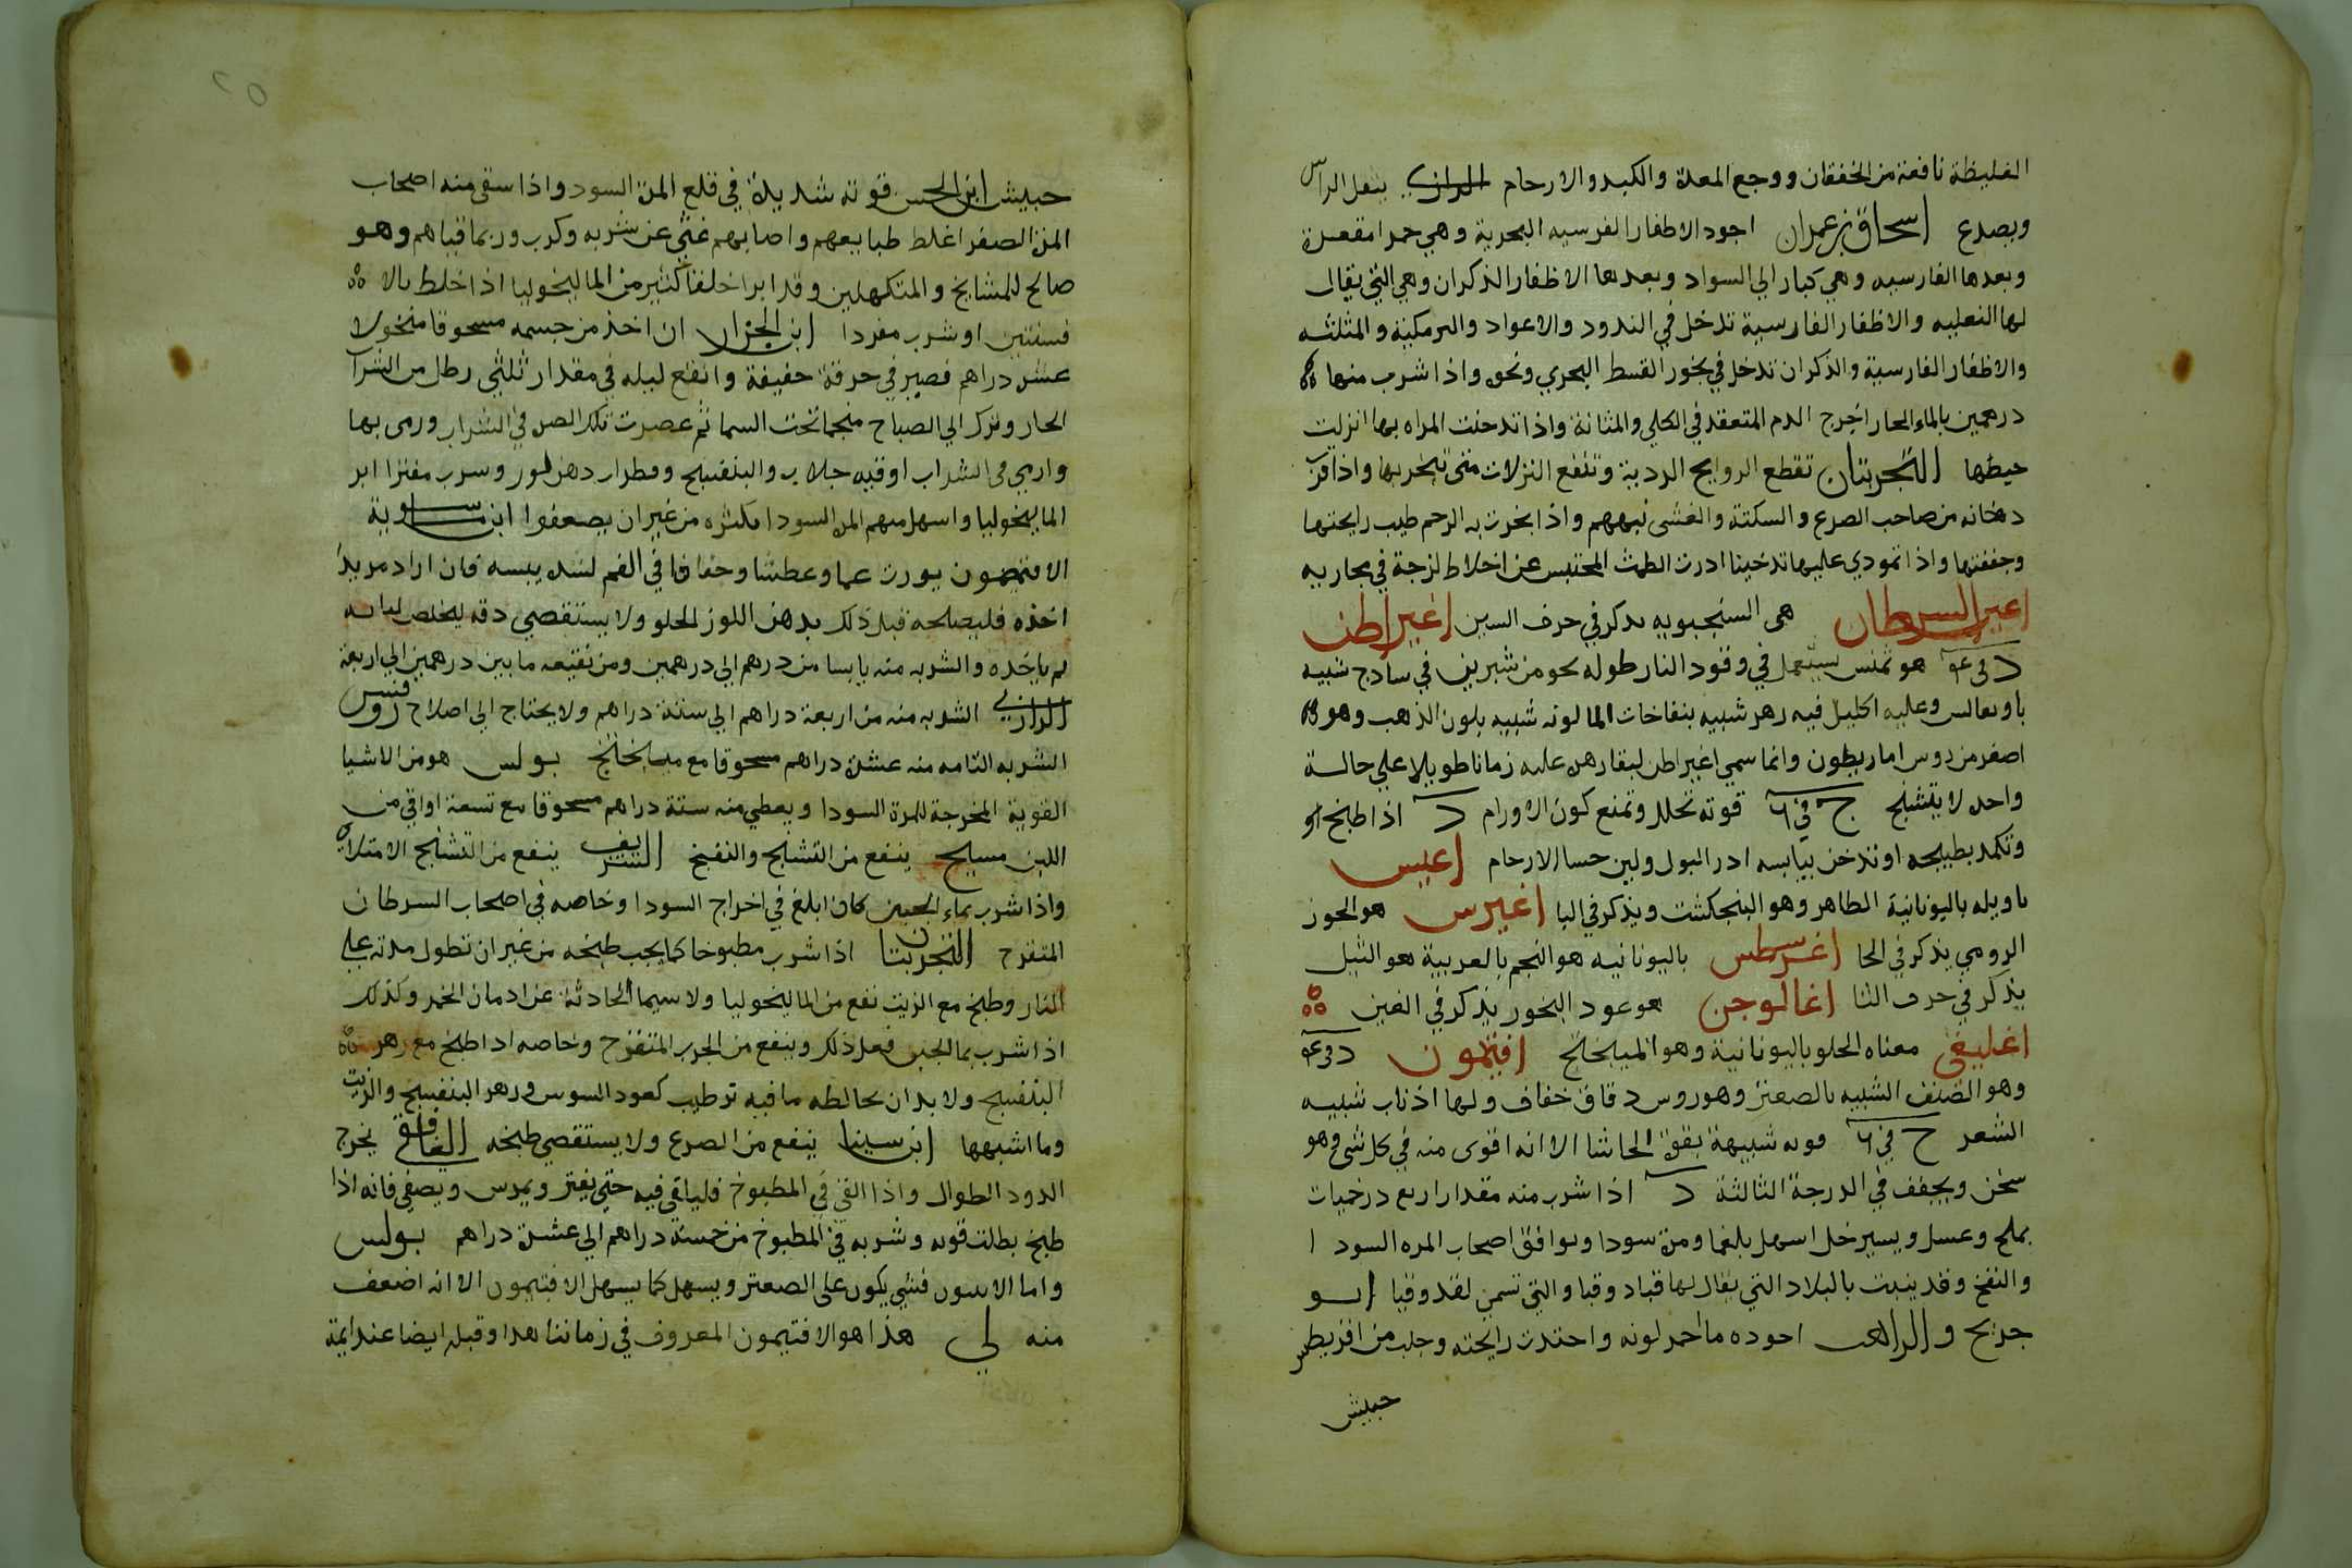 الغليظة نافعة من الخفقان ووجع المعدة والكبد والارحام الرازي ينفل الراس
ويصدع اسحاق بن عمران اجود الاظفار الفرسيه البحرية وهي حمرا مقعرة
وبعدها الفارسيه وهي كبار الي السواد وبعدها الاظفار الذكران وهي التي يقال
لها النعليه والاظفار الفارسية تدخل في الندود والاعواد والبرمكية والمثلثه
والاظفار الفارسية والذكران تدخل في بخور القسط البحري ونحوه واذا شرب منها
درهمين بالماء الحار اخرج الدم المتعقد في الكلي والمثانة واذا تدخنت المراه بها انزلت
حيضها التجربتان تقطع الروايح الردية وتنفع النزلات متي تبخر بها واذا قرب
دخانه من صاحب الصرع والسكتة والغشي نبههم واذا بخرت به الرحم طيب رايحتها
وجففتها واذا تمودي عليها تدخينا ادرت الطمث المحتبس عن اخلاط لزجة في مجاريه
اعين السرطان هي السنجبويه يذكر في حرف السين اغيراطن
د في عه هو تمنس يستعمل في وقود النار طوله نحو من شبرين في ساذج شبيه
وعليه اكليل فيه زهر شبيه بنفاخات الما لونه شبيه بلون الذهب وهو
اصفر من روس اماريطون وانما سمي اغيراطن لبقا زهره عليه زمانا طويلا علي حالة
واحده لا يتشنج ج في ٦ قوته تحلل وتمنع كون الاورام د اذا طبخ او
وتكمد بطبيخه او تدخن بيابسه ادر البول ولين جسا الارحام اغيس
تاويله باليونانية الطاهر وهو البنجكشت ويذكر في البا اغيرس هو الجوز
الرومي يذكر في الحا اغرسطس باليونانيه هو النجم بالعربية هو الثيل
يذكر في حرف الثا اغالوجن هو عود البخور يذكر في العين
اغليقي معناه الحلو باليونانية وهو الميبختج افتيمون د في عه
وهو الصنف الشبيه بالصعتر وهو روس دقاق خفاف ولها اذناب شبيه
الشعر ج في ٦ قوته شبيهة بقوة الحاشا الا انه اقوى منه في كل شي وهو
سخن ويجفف في الدرجة الثالثة د اذا شرب منه مقدار اربع درخميات
بملح وعسل ويسير خل اسهل بلغما ومرة سودا ويوافق اصحاب المره السودا
والنفخ وقد ينبت بالبلاد التي يقال لها قباد وقيا والتي تسمى لقدوقيا ابو
جريح والراهب اجوده ما احمر لونه واحتدت رايحته وجلب من اقريطس
حبيش
حبيش ابن الحسن قوته شديدة في قلع المرة السودا واذا سقي منه اصحاب
المرة الصفرا غلط طبايعهم واصابهم غثي عن شربه وكرب وربما قياهم وهو
صالح للمشايخ والمتكهلين وقد ابرا خلقا كثير من الماليخوليا اذا خلط بالا
فسنتين او شرب مفردا ابن الجزار ان اخذ من جسمه مسحوقا منخولا
عشر دراهم فصير في خرقة خفيفة وانقع ليله في مقدار ثلثي رطل من الشراب
الحار وترك الي الصباح منجما تحت السما ثم عصرت تلك الصره في الشراب ورمي بها
والقي في الشراب اوقيه جلاب والبنفسج وقطرات دهن لوز وشرب مفترا ابرا
الماليخوليا واسهل منهم المره السودا بكثره من غير ان يضعفوا ابن ماسوية
الافتيمون يورث غما وعطشا وجفافا في الفم لشده يبسه فان اراد مريد
اخذه فليصلحه قبل ذلك بدهن اللوز الحلو ولا يستقصي دقه ليخلص لبابه
ثم ياخذه والشربه منه يابسا من درهم الي درهمين ومن نقيعه ما بين درهمين الي اربعة
الرازي الشربه منه من اربعة دراهم الي ستة دراهم ولا يحتاج الي اصلاح روفس
الشربه التامه منه عشرة دراهم مسحوقا مع ميبختج بولس هو من الاشيا
القوية المخرجة للمرة السودا ويعطي منه ستة دراهم مسحوقا مع تسعة اواقي من
اللبن مسيح ينفع من التشنج والنفخ الشريف ينفع من التشنج الامتلاي
واذا شرب بماء الجبن كان ابلغ في اخراج السودا وخاصه في اصحاب السرطان
المتقرح التجربتان اذا شرب مطبوخا كما يجب طبخه من غير ان تطول مدته علي
النار وطبخ مع الزيت نفع من الماليخوليا ولا سيما الحادثة عن ادمان الخمر وكذلك
اذا شرب بما الجبن فعل ذلك وينفع من الجرب المتقرح وخاصه اذا طبخ مع زهر
البنفسج ولا بد ان يخالطه ما فيه ترطيب كعود السوس وزهر البنفسج والزيت
وما اشبهها ابن سينا ينفع من الصرع ولا يستقصي طبخه الغافقي يخرج
الدود الطوال واذا القي في المطبوخ فليلقي فيه حتي يفتر ويمرس ويصفي فانه اذا
طبخ بطلت قوته وشربه في المطبوخ من خمسة دراهم الي عشرة دراهم بولس
واما الايثون فشي يكون على الصعتر ويسهل كما يسهل الافتيمون الا انه اضعف
منه لي هذا هو الافتيمون المعروف في زماننا هذا وقبله ايضا عند ايمة